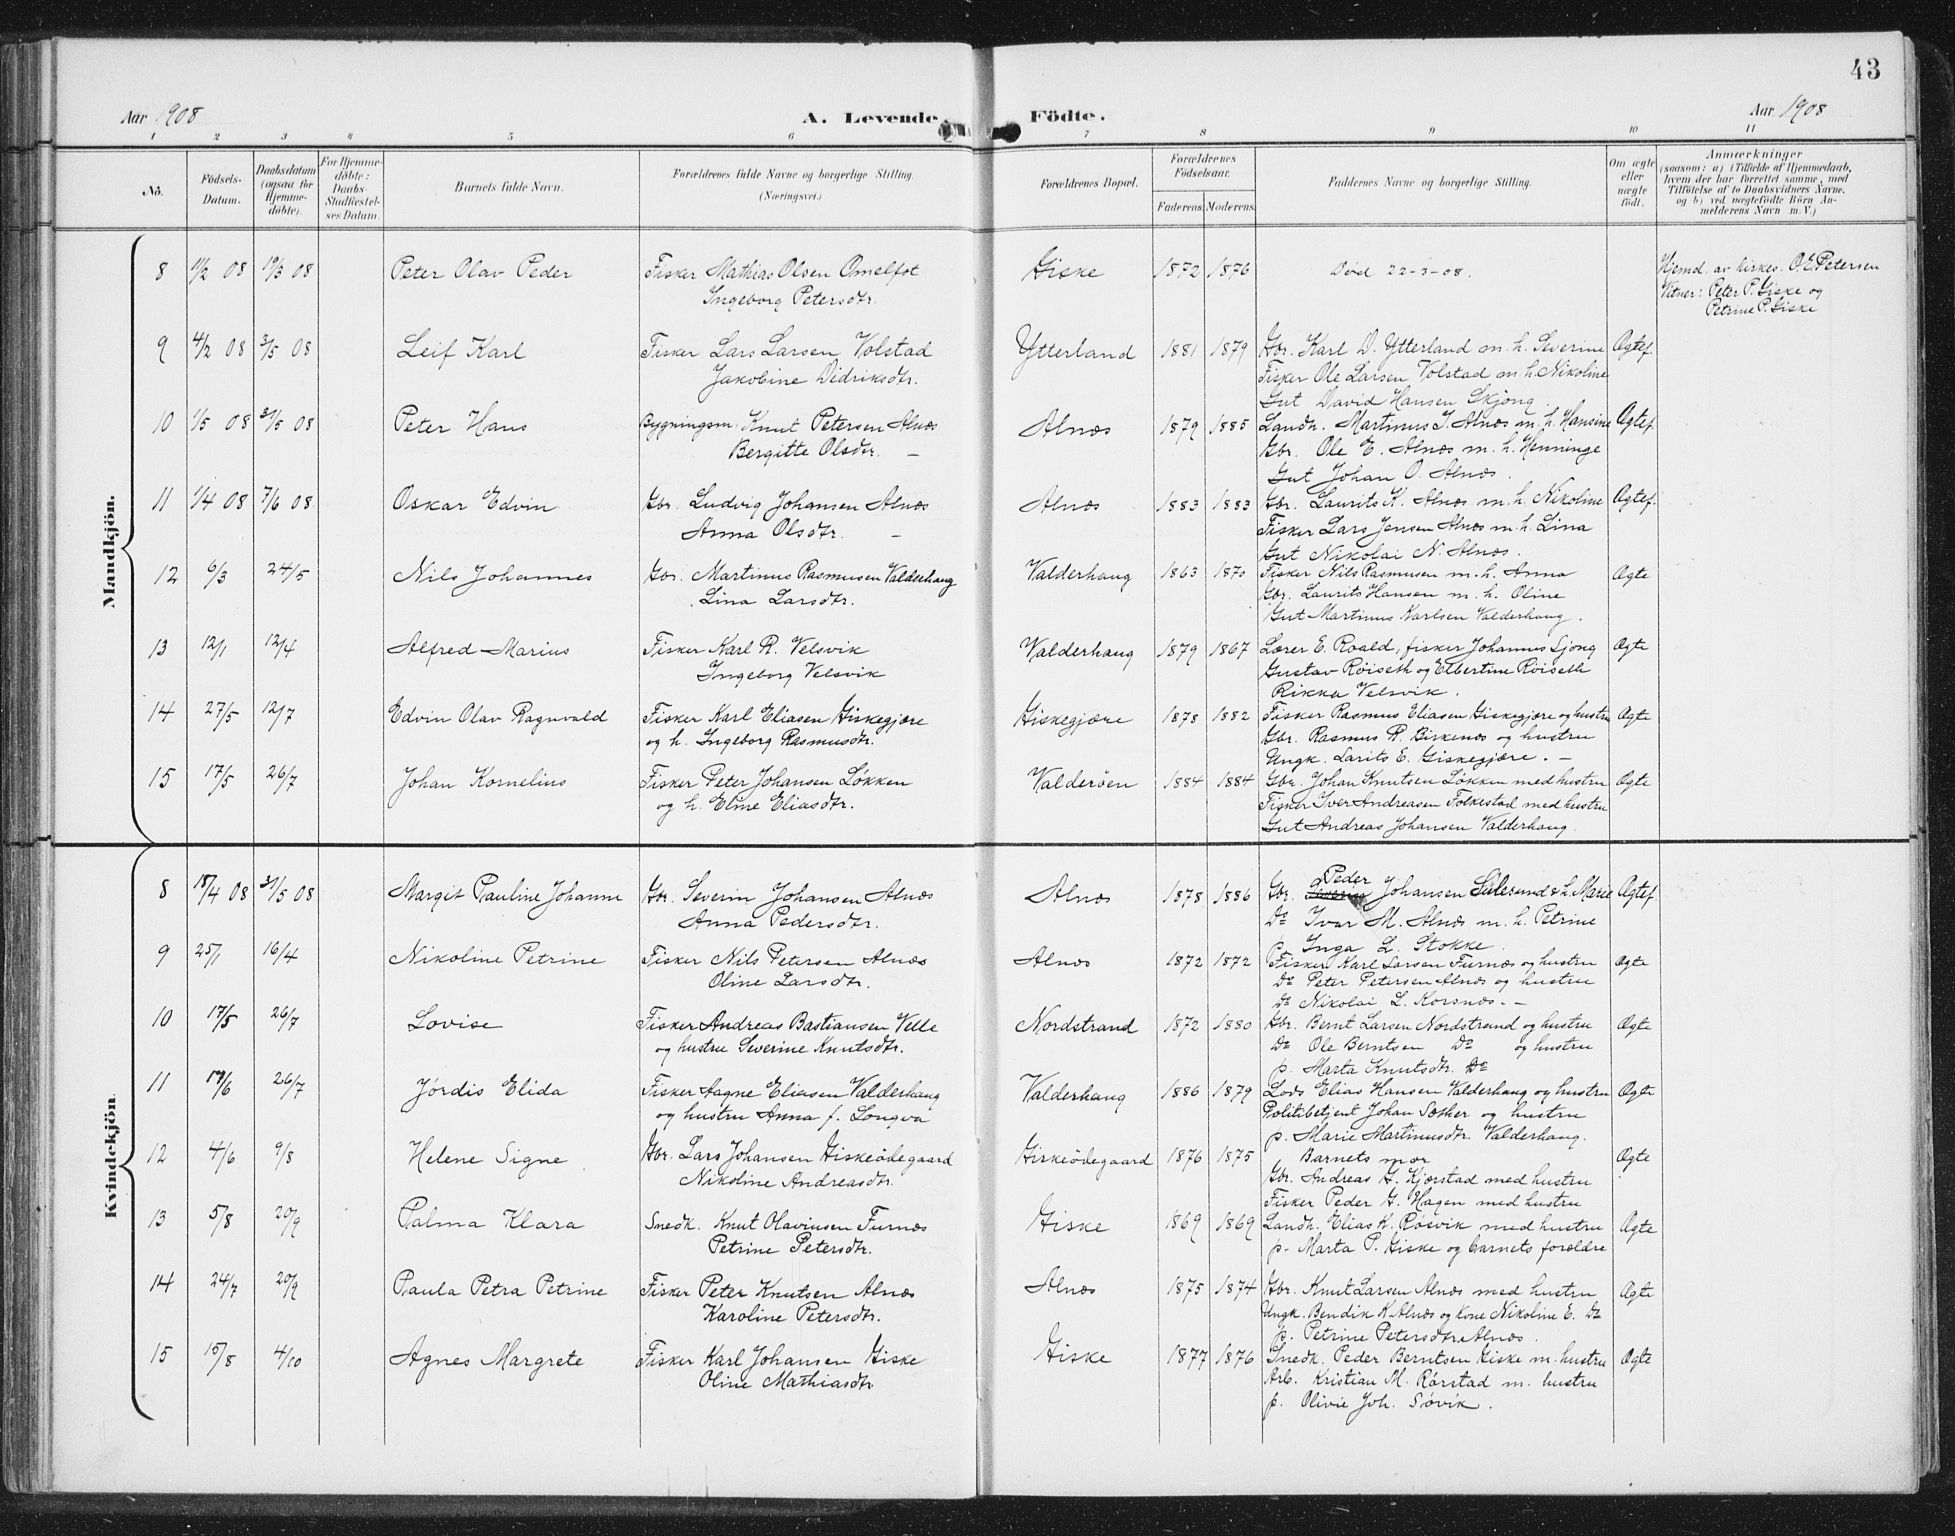 43
Aar 1908
A. Levende Födte.
Aar 1908
1 2 3 4 5 6 7 8 9 10 11
Nö.
Födsels-Datum.
Daabsdatum (ogsaa för Hjemme-döbte).
For Hjemme-döbte: Daabs-Stadfæstel-ses Datum.
Barnets fulde Navn.
Forældrenes fulde Navne og borgerlige Stilling. (Næringsvei.)
Forældrenes Bopæl.
Forældrenes Födselsaar.
Faderens. Moderens.
Faddernes Navne og borgerlige Stilling.
Om ægte eller uægte födt.
Anmærkninger
(saasom: a) i Tilfælde af Hjemmedaab, hvem der har forrettet samme, med Tilföielse af to Daabsvidners Navne, og b) ved uægtefödte Börn An-melderens Navn m. V.)
Mandkjön.
8 1/2 08 19/3 08 Peter Olav Peder Fisker Mathias Olsen Omelfot Giske 1872 1876 Död 22-3-08. Hjemd. av kirkes. O. E. Petersen
Ingeborg Petersdtr. Vitner: Peter P. Giske og
Petrine P. Giske
9 4/2 08 3/5 08 Leif Karl Fisker Lars Larsen Volstad Ytterland 1881 1879 Gbr. Karl D. Ytterland m. h. Severine Ægtef.
Jakobine Didriksdtr. Fisker Ole Larsen Volstad m. h. Nikoline
Gut David Hansen Skjong.
10 1/5 08 31/5 08 Peter Hans Bygningsm. Knut Petersen Alnæs Alnæs 1879 1885 Landh. Martinus J. Alnæs m. h. Hansine Ægtef.
Bergitte Olsdtr. — Gbr. Ole E. Alnæs m. h. Henninge
Gut Johan O. Alnæs.
11 1/4 08 7/6 08 Oskar Edvin Gbr. Ludvig Johansen Alnæs Alnæs 1883 1883 Gbr. Laurits K. Alnæs m. h. Nikoline Ægtef.
Anna Olsdtr. — Fisker Lars Jensen Alnæs m. h. Lina
Gut Nikolai N. Alnæs.
12 6/3 24/5 Nils Johannes Gbr. Martinus Rasmusen Valderhaug Valderhaug 1863 1870 Fisker Nils Rasmusen m. h. Anna Ægte
Lina Larsdtr. Gbr. Laurits Hansen m. h. Oline
Gut Martinus Karlsen Valderhaug.
13 12/1 12/4 Alfred Marius Fisker Karl R. Velsvik Valderhaug 1879 1867 Lærer E. Roald, fisker Johannes Ljong Ægte
Ingeborg Velsvik Gustav Röiseth og Elbertine Röiseth
Rikka Velsvik.
14 27/5 12/7 Edvin Olav Ragnvald Fisker Karl Eliasen Giskegjære Giskegjære 1878 1882 Fisker Rasmus Eliasen Giskegjære og hustru Ægte
og h. Ingeborg Rasmusdtr. Gbr. Rasmus R. Birkenæs og hustru
Ungk. Larits E. Giskegjære. —
15 17/5 26/7 Johan Kornelius Fisker Peter Johansen Løkken Valderöen 1884 1884 Gbr. Johan Knutsen Løkken med hustru Ægte
og h. Eline Eliasdtr. Fisker Iver Andreasen Folkestad med hustru
Gut Andreas Johansen Valderhaug.
Kvindekjön
8 18/4 08 31/5 08 Margit Pauline Johanne Gbr. Severin Johansen Alnæs Alnæs 1878 1886 Gbr. Peder Johansen Sulesund & h. Marie Ægtef.
Anna Pedersdtr. Do Ivar M. Alnæs m. h. Petrine
p. Inga L. Stokke.
9 25/1 16/4 Nikoline Petrine Fisker Nils Petersen Alnæs Alnæs 1872 1872 Fisker Karl Larsen Furnæs og hustru Ægte
Oline Larsdtr. Do Peter Petersen Alnæs og hustru
Do Nikolai L. Korsnæs. —
10 17/5 26/7 Lovise Fisker Andreas Bastiansen Velle Nordstrand 1872 1880 Gbr. Bernt Larsen Nordstrand og hustru Ægte
og hustru Severine Knutsdtr. Do Ole Berntsen Do og hustru
p. Marta Knutsdtr. Do
11 17/6 26/7 Jórdis Elida Fisker Aagne Eliasen Valderhaug Valderhaug 1886 1879 Lods Elias Hansen Valderhaug og hustru Ægte
og hustru Anna f. Longva Politibetjent Johan Sæther og hustru
p. Marie Martinusdtr. Valderhaug.
12 4/6 9/8 Helene Signe Gbr. Lars Johansen Giskeödegaard Giskeödegaard 1876 1875 Barnets mor Ægte
Nikoline Andreasdtr. Gbr. Andreas G. Kjærstad med hustru
Fisker Peder G. Hagen med hustru
13 5/8 20/9 Palma Klara Snedk. Knut Olavinsen Furnæs Giske 1869 1869 Landh. Elias K. Røsvik med hustru Ægte
Petrine Petersdtr. p. Marta P. Giske og barnets forældre
14 24/7 20/9 Paula Petra Petrine Fisker Peter Knutsen Alnæs Alnæs 1875 1874 Gbr. Knut Larsen Alnæs med hustru Ægte
Karoline Petersdtr. Ungk. Bendik K. Alnæs og kone Nikoline E. Do
p. Petrine Petersdtr. Alnæs.
15 15/8 4/10 Agnes Margrete Fisker Karl Johansen Giske Giske 1877 1876 Snedk. Peder Berntsen Giske m. hustru Ægte
Oline Mathiasdtr. Arb. Kristian M. Rørstad m. hustru
p. Olivie Joh. Søvik.